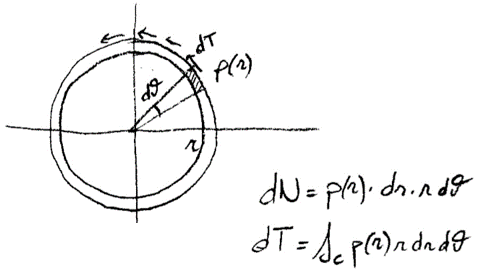 dT
p(r)
dϑ
r
dN = p(r) · dr · r dϑ
dT = f_c p(r) r dr dϑ